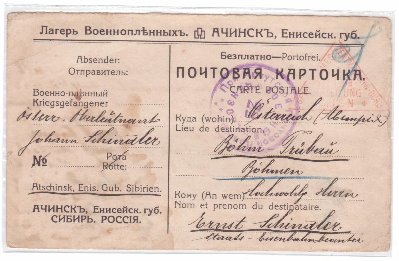 Лагерь Военноплѣнныхъ. АЧИНСКЪ, Енисейск. губ.
Absender:
Отправитель:
Военно-плѣнный
Kriegsgefangener
österr. Oberleutnant
Johann Schindler
№ Рота
Rotte:
Atschinsk, Enis. Gub. Sibirien.
АЧИНСКЪ, Енисейск. губ.
СИБИРЬ. РОССІЯ.
Безплатно—Portofrei.
ПОЧТОВАЯ КАРТОЧКА.
CARTE POSTALE.
Куда (wohin) Österreich
Lieu de destination
Böhm. Trübau
Böhmen
Кому (An wem) Herrn
Nom et prenom du destinataire.
Ernst Schindler
Staats-Eisenbahnbeamter